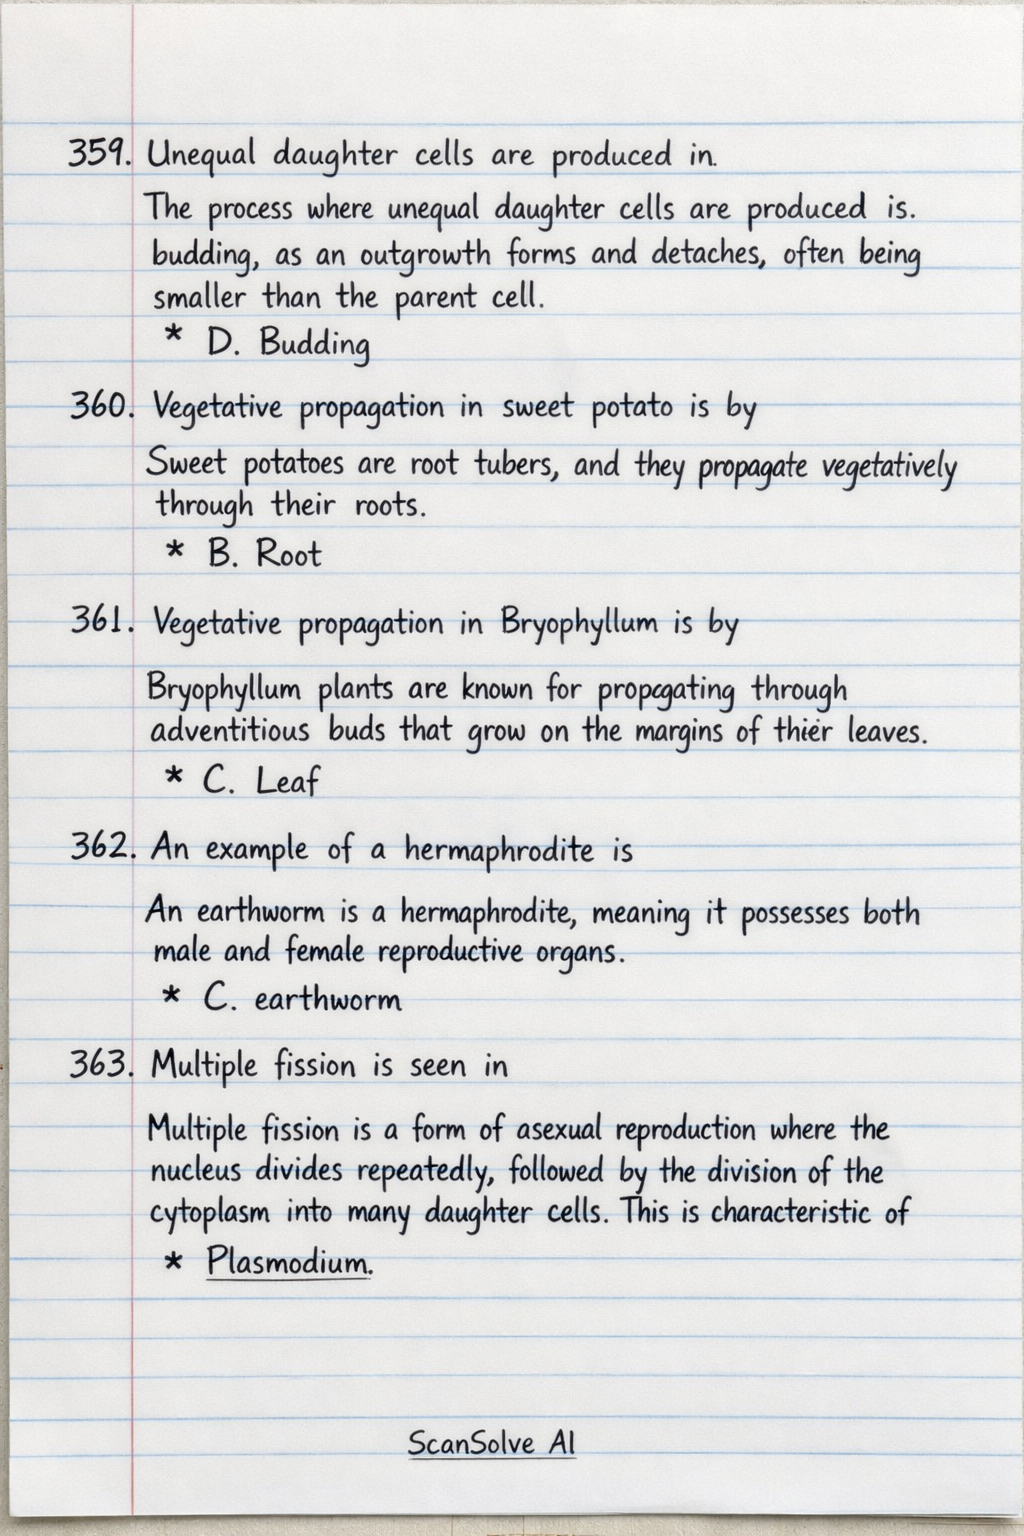 359. Unequal daughter cells are produced in.
The process where unequal daughter cells are produced is.
budding, as an outgrowth forms and detaches, often being
smaller than the parent cell.
* D. Budding
360. Vegetative propagation in sweet potato is by
Sweet potatoes are root tubers, and they propagate vegetatively
through their roots.
* B. Root
361. Vegetative propagation in Bryophyllum is by
Bryophyllum plants are known for propagating through
adventitious buds that grow on the margins of thier leaves.
* C. Leaf
362. An example of a hermaphrodite is
An earthworm is a hermaphrodite, meaning it possesses both
male and female reproductive organs.
* C. earthworm
363. Multiple fission is seen in
Multiple fission is a form of asexual reproduction where the
nucleus divides repeatedly, followed by the division of the
cytoplasm into many daughter cells. This is characteristic of
* Plasmodium.
ScanSolve AI